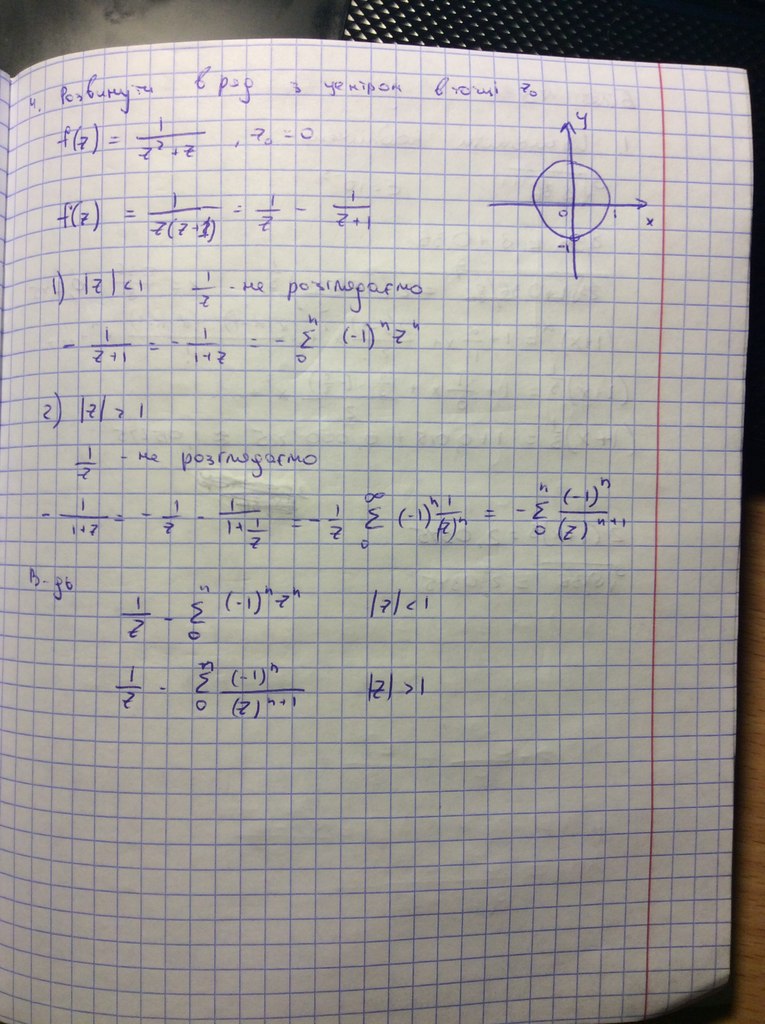 4. Розвинути в ряд з центром в точці z₀
f(z) = 1/(z² + z) , z₀ = 0
y
0 1 x
-1
f(z) = 1/(z(z+1)) = 1/z - 1/(z+1)
1) |z| < 1 1/z - не розглядаємо
- 1/(z+1) = - 1/(1+z) = - Σ₀ⁿ (-1)ⁿ zⁿ
2) |z| > 1
1/z - не розглядаємо
- 1/(1+z) = - 1/z - 1/(1+1/z) = - 1/z Σ₀^∞ (-1)ⁿ 1/(z)ⁿ = - Σ₀ⁿ (-1)ⁿ/(z)ⁿ⁺¹
В-дь
1/z - Σ₀ⁿ (-1)ⁿ zⁿ |z| < 1
1/z - Σ₀ⁿ (-1)ⁿ/(z)ⁿ⁺¹ |z| > 1